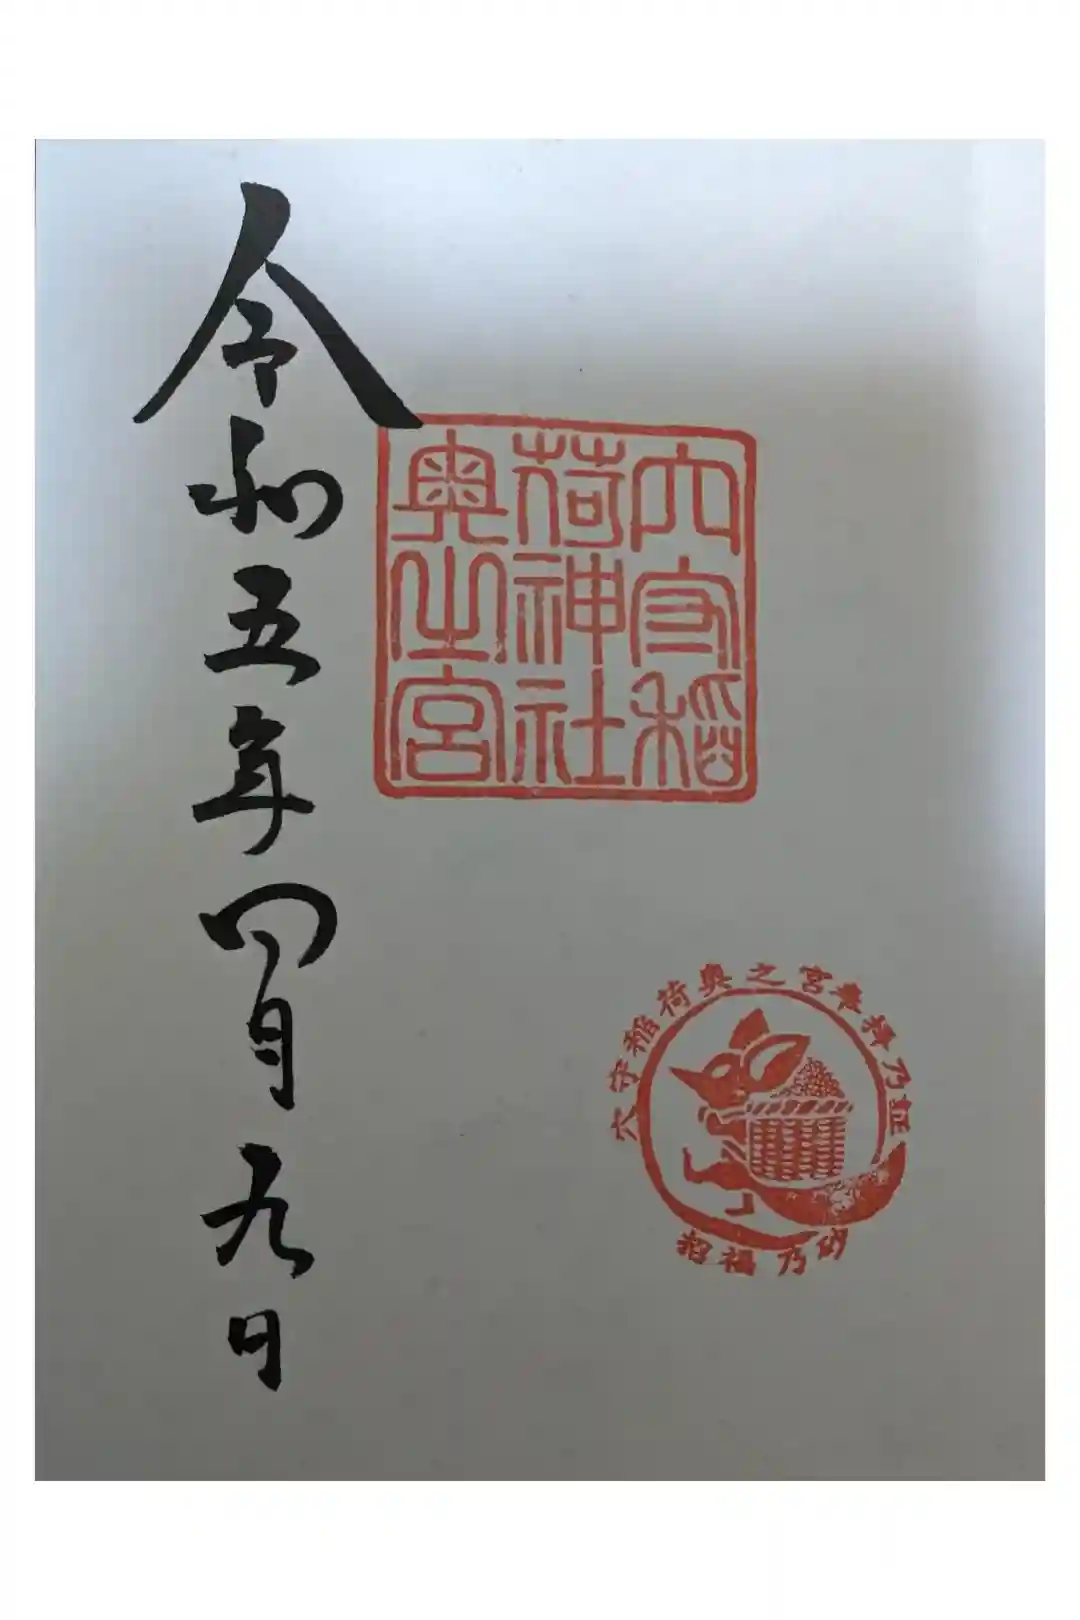 穴守稲
荷神社
奥之宮
穴守稲荷奥之宮奉拝乃証
招福乃砂
令和五年四月九日